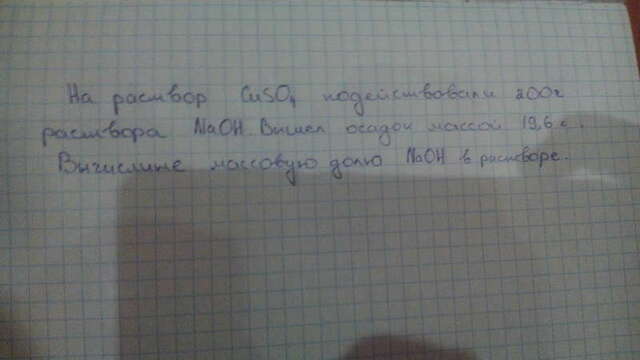 На раствор CuSO4 подействовали 200г
раствора NaOH. Вышел осадок массой 19,6 г.
Вычислите массовую долю NaOH в растворе.